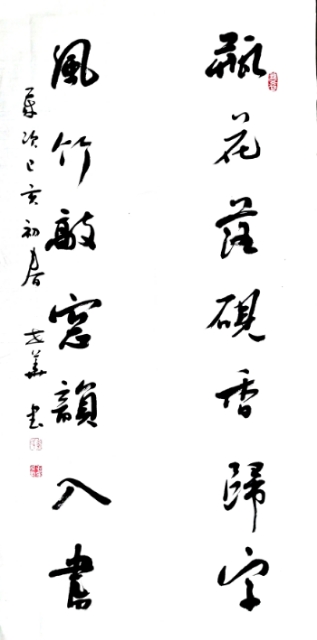 瓶花落硯香歸字
風竹敲窓韻入書
歲次己亥初春 志華 书